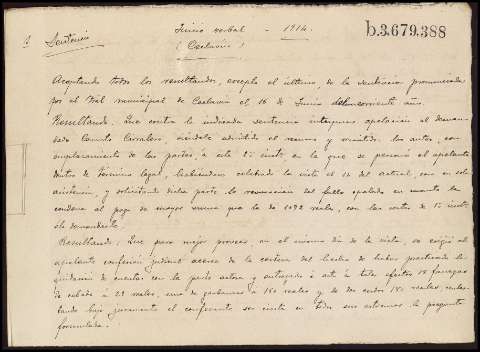 Juicio verbal - 1914.
b.3.679.388
1 Sentencia
(Ceclavín)
Aceptando todos los resultandos, excepto el último, de la sentencia pronunciada
por el Tral municipal de Ceclavín el 16 de Junio del corriente año.
Resultando: Que contra la indicada sentencia interpuso apelación el deman-
dado Camilo Carratero, siéndole admitido el recurso y remitidos los autos, con
emplazamiento de las partes, a este de 1ª inst, en la que se personó el apelante
dentro de término legal, habiéndose celebrado la vista el 12 del actual, con su sola
asistencia, y solicitando dicha parte la revocación del fallo apelado en cuanto le
condena al pago de mayor suma que la de 1092 reales, con las costas de 1ª inst
al demandante.
Resultando: Que para mejor proveer, en el mismo día de la vista, se exigió al
apelante confesión judicial acerca de la certeza del hecho de haber practicado li-
quidación de cuentas con la parte actora y entregado a esta a tales efectos 18 fanegas
de cebada a 22 reales, una de garbanzos a 180 reales y de dos cerdos 180 reales, contes-
tando bajo juramento el confesante ser cierta en todos sus extremos la pregunta
formulada.